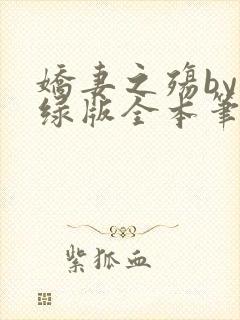 娇妻之殇by
绿版全本笔
紫狐血